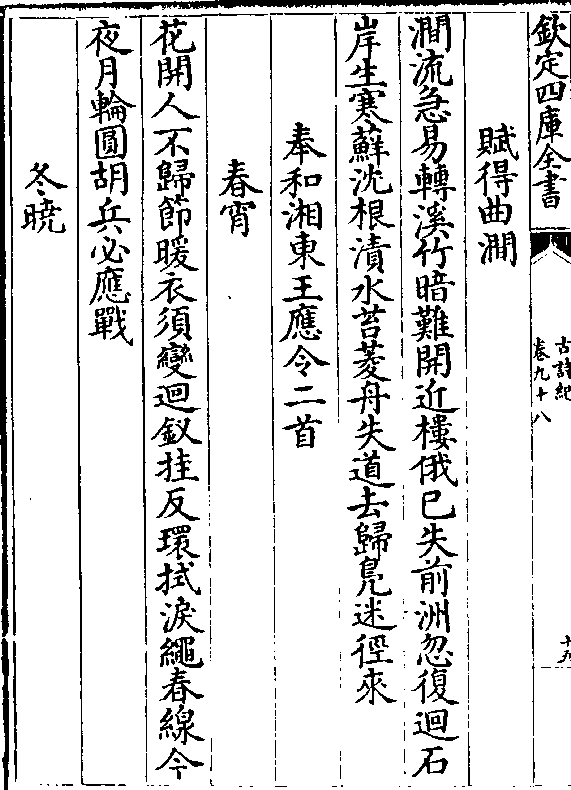 欽定四庫全書
古詩紀
卷九十八
十九
賦得曲澗
澗流急易轉溪竹暗難開近樓俄已失前洲忽復迴石
岸生寒蘚沈根漬水苔菱舟失道去歸鳧迷徑來
奉和湘東王應令二首
春宵
花開人不歸節暖衣須變迴釵挂反環拭淚繩春線今
夜月輪圓胡兵必應戰
冬曉